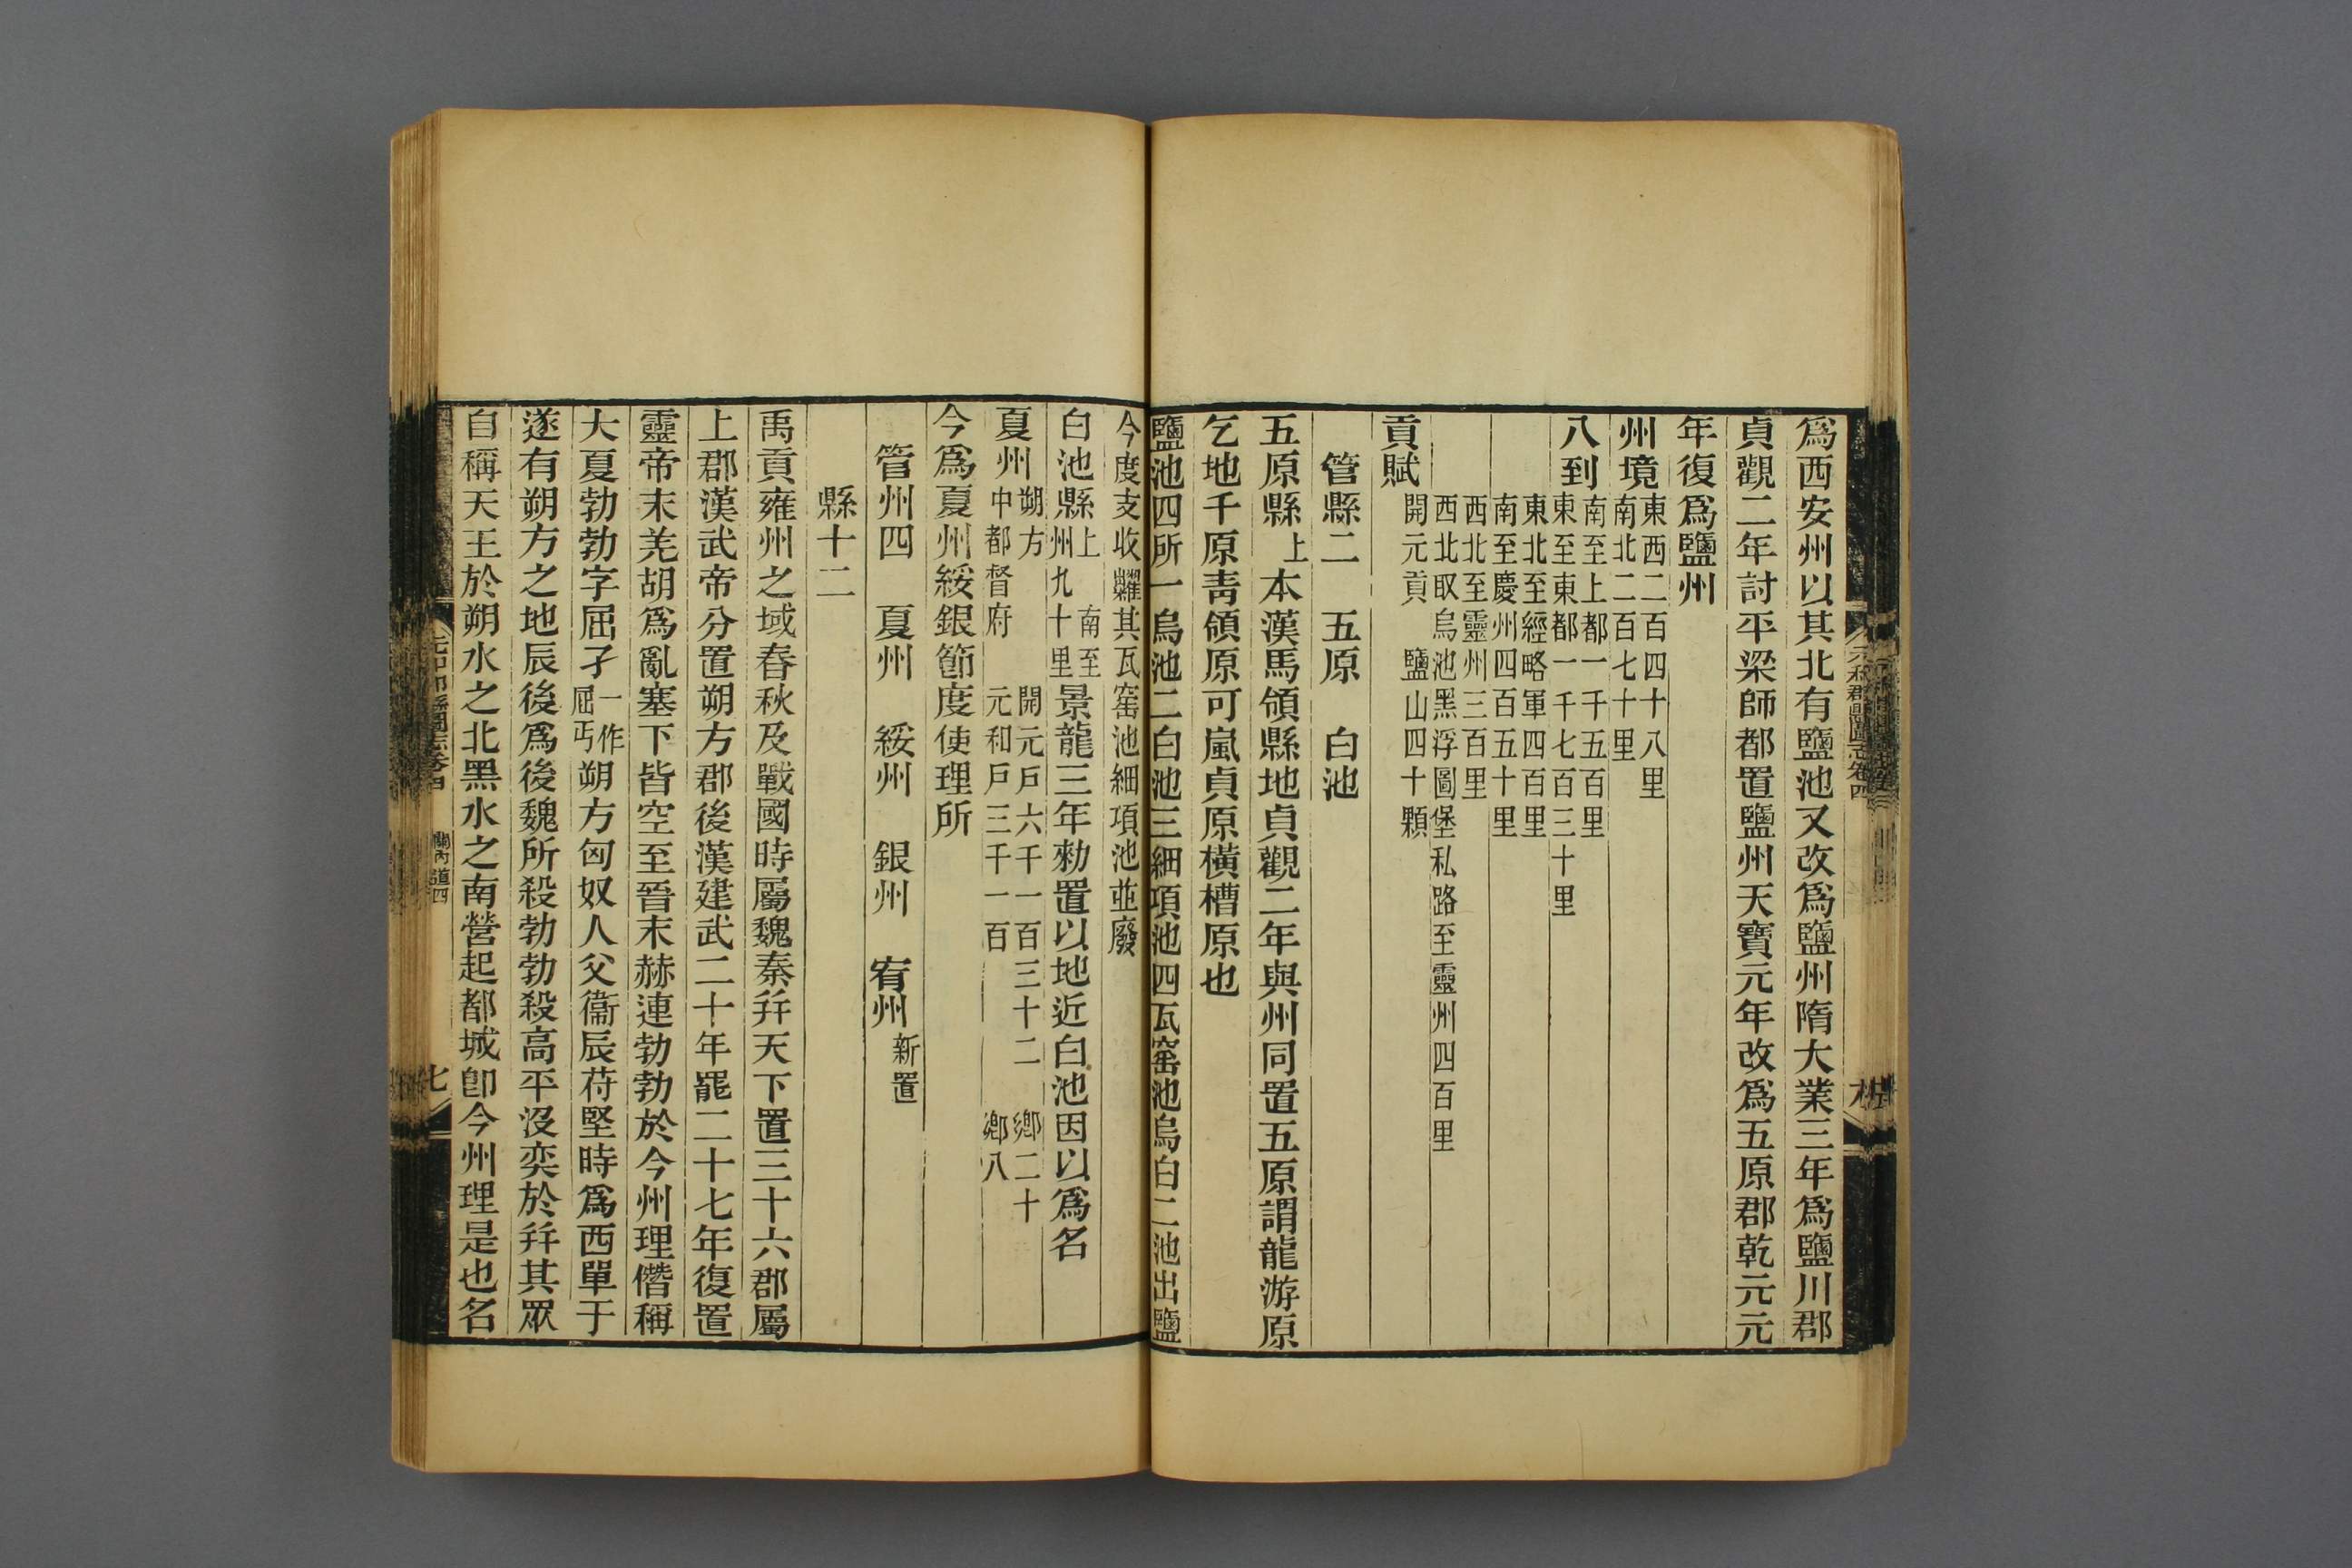 爲西安州以其北有鹽池又改爲鹽州隋大業三年爲鹽川郡
貞觀二年討平梁師都置鹽州天寶元年改爲五原郡乾元元
年復爲鹽州
州境東西二百四十八里
南北二百七十里
八到南至上都一千五百里
東至東都一千七百三十里
東北至經略軍四百里
南至慶州四百五十里
西北至靈州三百里
西北取烏池黑浮圖堡私路至靈州四百里
貢賦開元貢 鹽山四十顆
管縣二 五原 白池
五原縣上本漢馬領縣地貞觀二年與州同置五原謂龍游原
乞地千原靑領原可嵐貞原橫槽原也
鹽池四所一烏池二白池三細項池四瓦窰池烏白二池出鹽
今度支收糶其瓦窰池細項池並廢
白池縣上 南至
州九十里景龍三年勑置以地近白池因以爲名
夏州朔方 開元戶六千一百三十二 鄕二十
中都督府 元和戶三千一百 鄕八
今爲夏州綏銀節度使理所
管州四 夏州 綏州 銀州 宥州新置
縣十二
禹貢雍州之域春秋及戰國時屬魏秦幷天下置三十六郡屬
上郡漢武帝分置朔方郡後漢建武二十年罷二十七年復置
靈帝末羌胡爲亂塞下皆空至晉末赫連勃勃於今州理僭稱
大夏勃勃字屈孑一作
屈丐朔方匈奴人父衞辰苻堅時爲西單于
遂有朔方之地辰後爲後魏所殺勃勃殺高平沒奕於幷其眾
自稱天王於朔水之北黑水之南營起都城卽今州理是也名
元和郡縣圖志卷四 關內道四
七